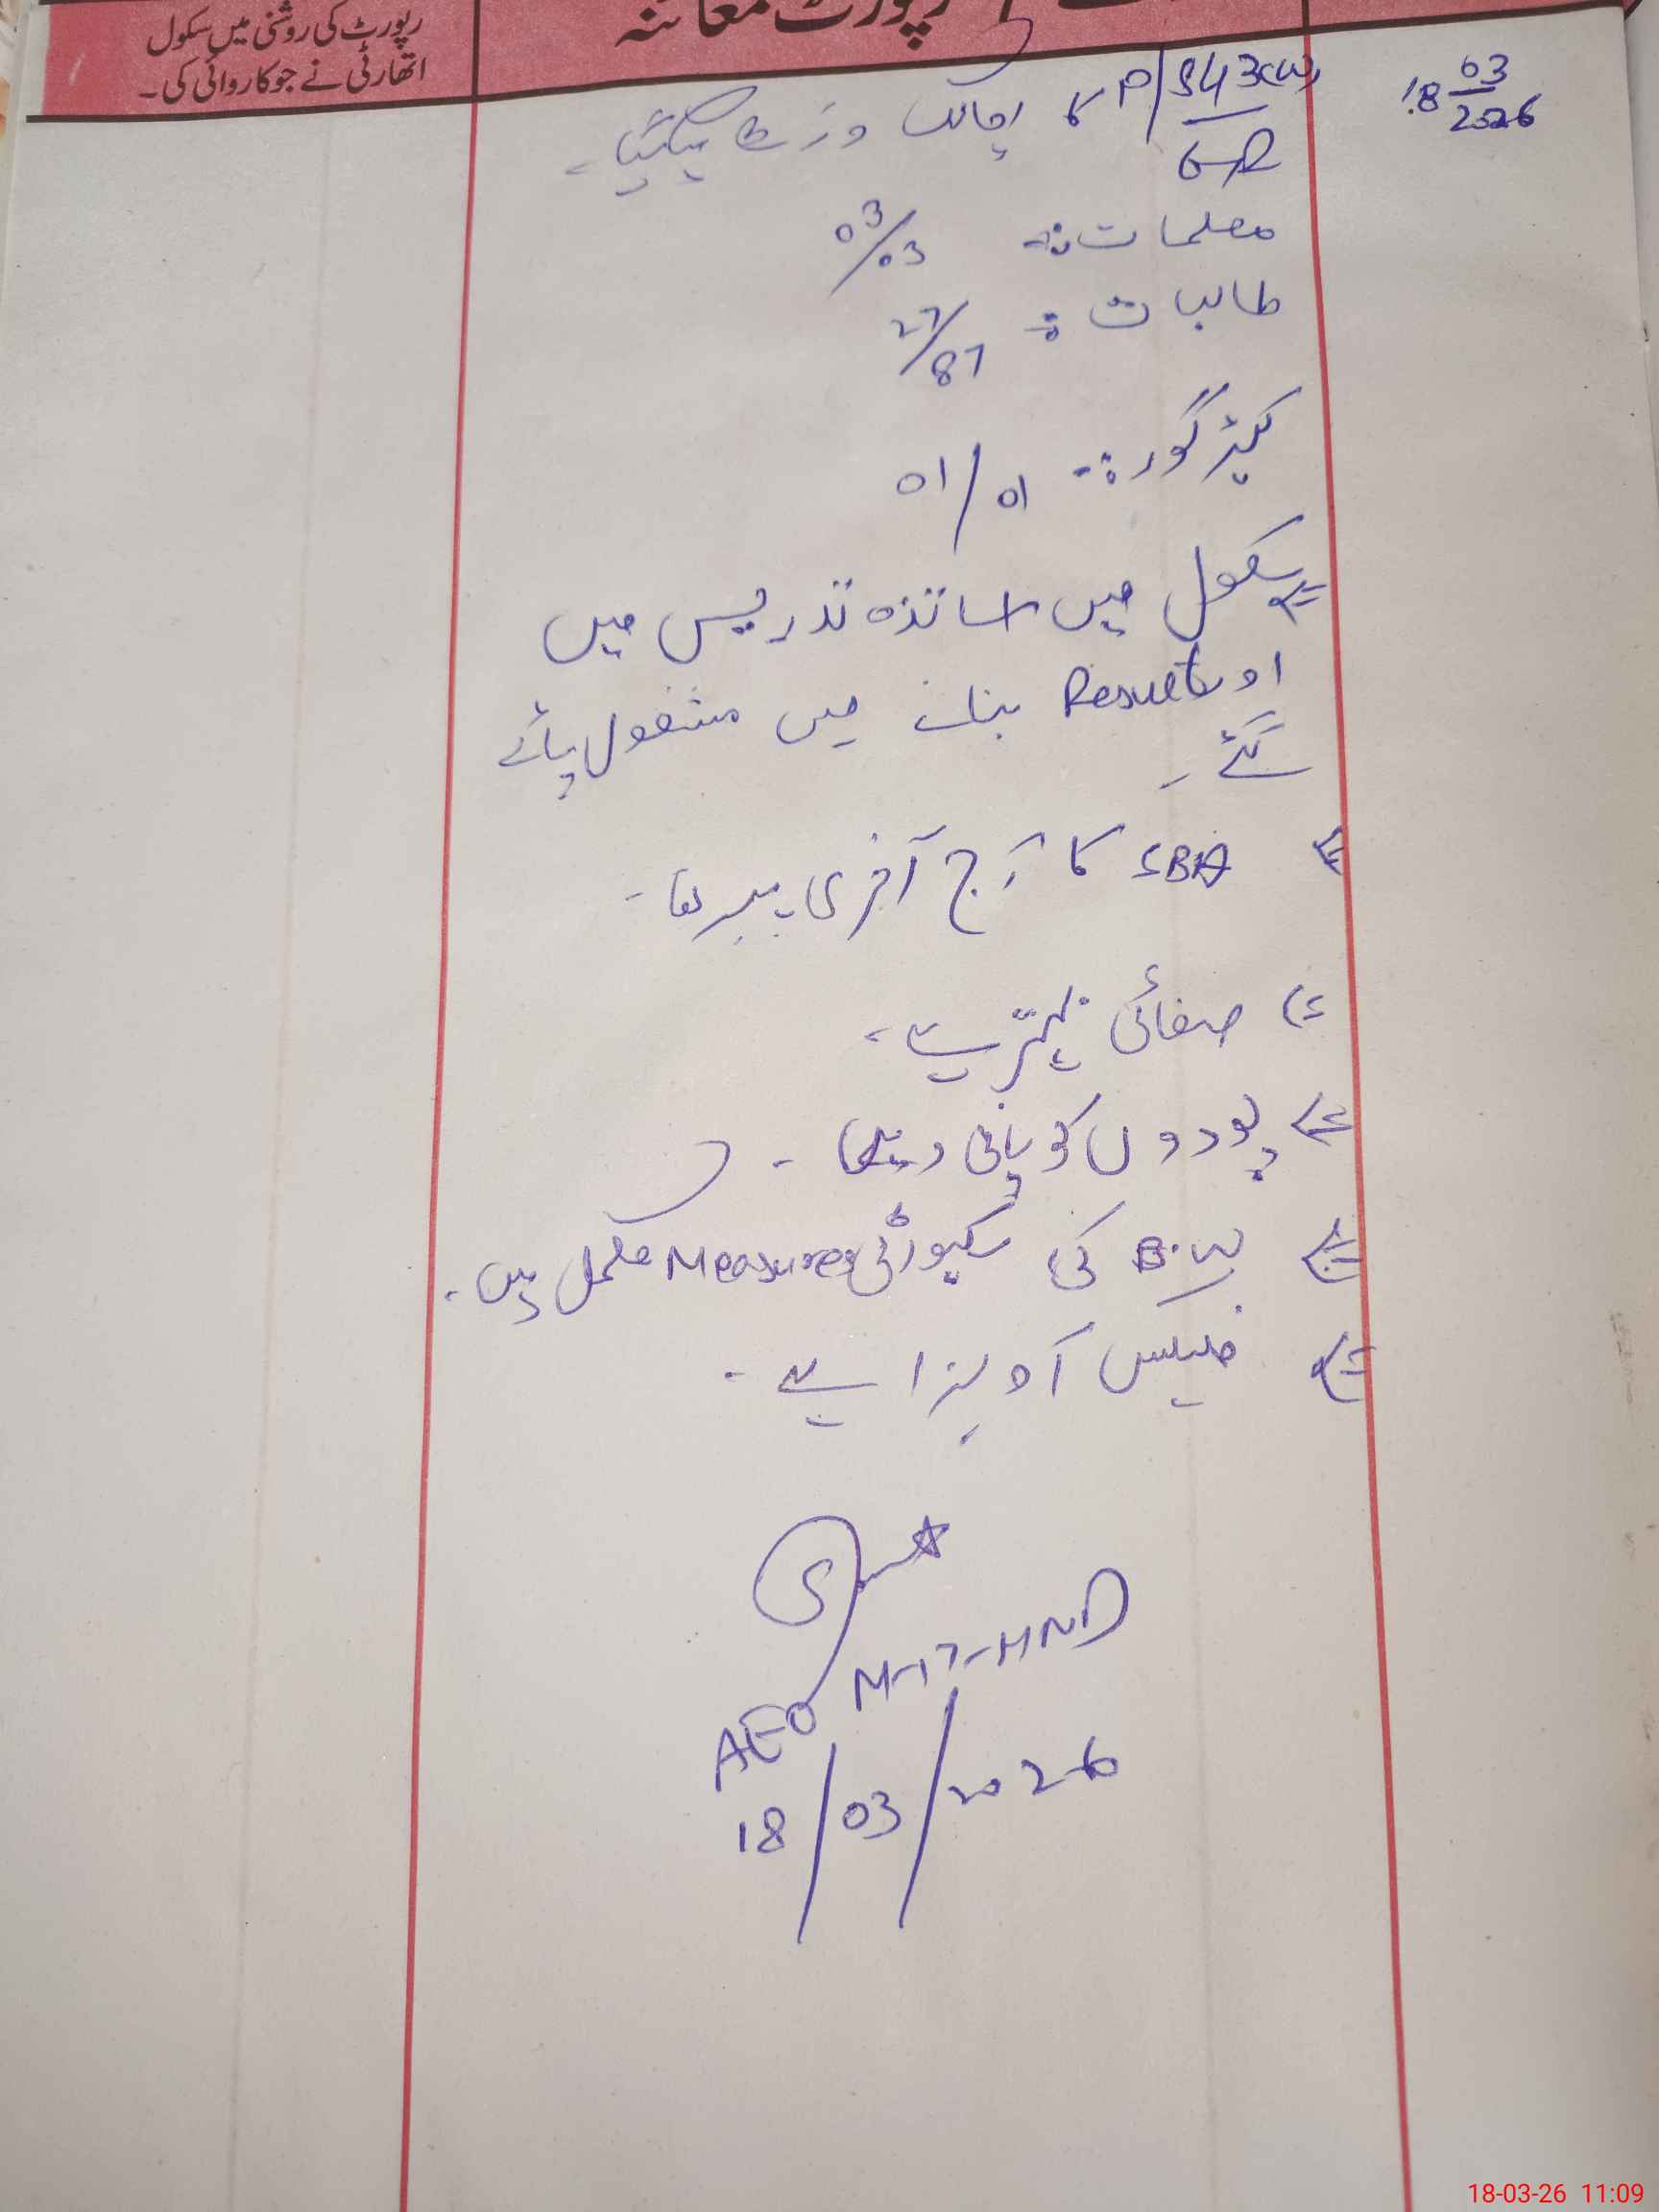 رپورٹ معائنہ
رپورٹ کی روشنی میں سکول
اتھارٹی نے جو کاروائی کی۔
18 03
2026
P/S 43(W)
GR
کا اچانک وزٹ کیا گیا۔
معلمات :- 03/03
طالبات :- 27/87
کیئر گور :- 01/01
سکول میں اساتذہ تدریس میں
اور Results بنانے میں مشغول پائے
گئے۔
SBA کا آج آخری پیپر تھا۔
صفائی بہتر ہے۔
پودوں کو پانی دیں۔
B.W کی سکیورٹی Measures مکمل ہیں۔
فلیکس آویزاں ہے۔
AEO M-17-HND
18/03/2026
18-03-26 11:09